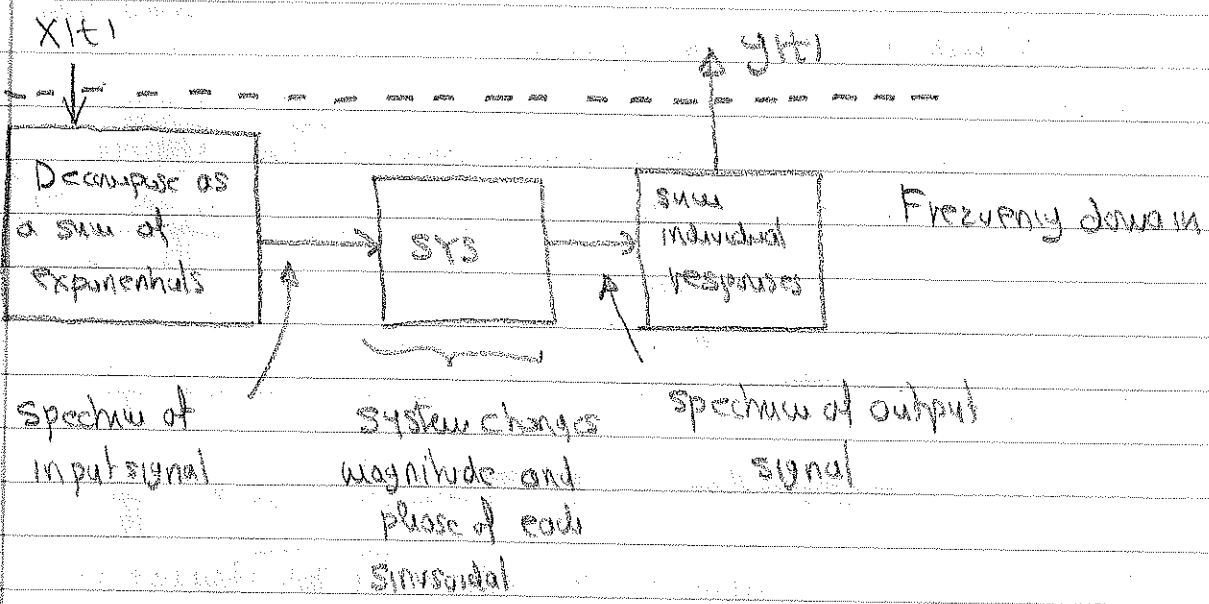 x(t)
y(t)
Decompose as
a sum of
exponentials
SYS
sum
individual
responses
Frequency domain
spectrum of
input signal
system changes
magnitude and
phase of each
sinusoidal
spectrum of output
signal